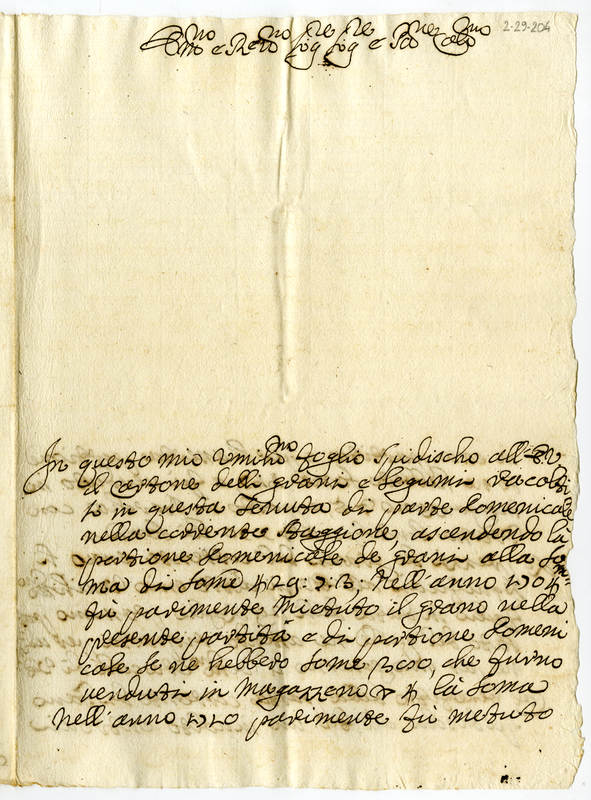 2-29-204
Em.no e Re.no Sig.re Sig.re e Pa
In questo mio Umil.mo foglio spedischo all'E.V.
il cartone delli grani e legumi racolti
in questa Tenuta di parte Domenicale
nella corrente staggione, ascendendo la
portione Domenicale de grani alla som
ma di some 429: 2: 3: Nell'anno 1704
fù parimente mietuto il grano nella
presente partita e di portione Domeni
cale se ne hebbero some che furno
venduti in Magazzeno 4 la soma
Nell'anno 1710 parimente fù metuto